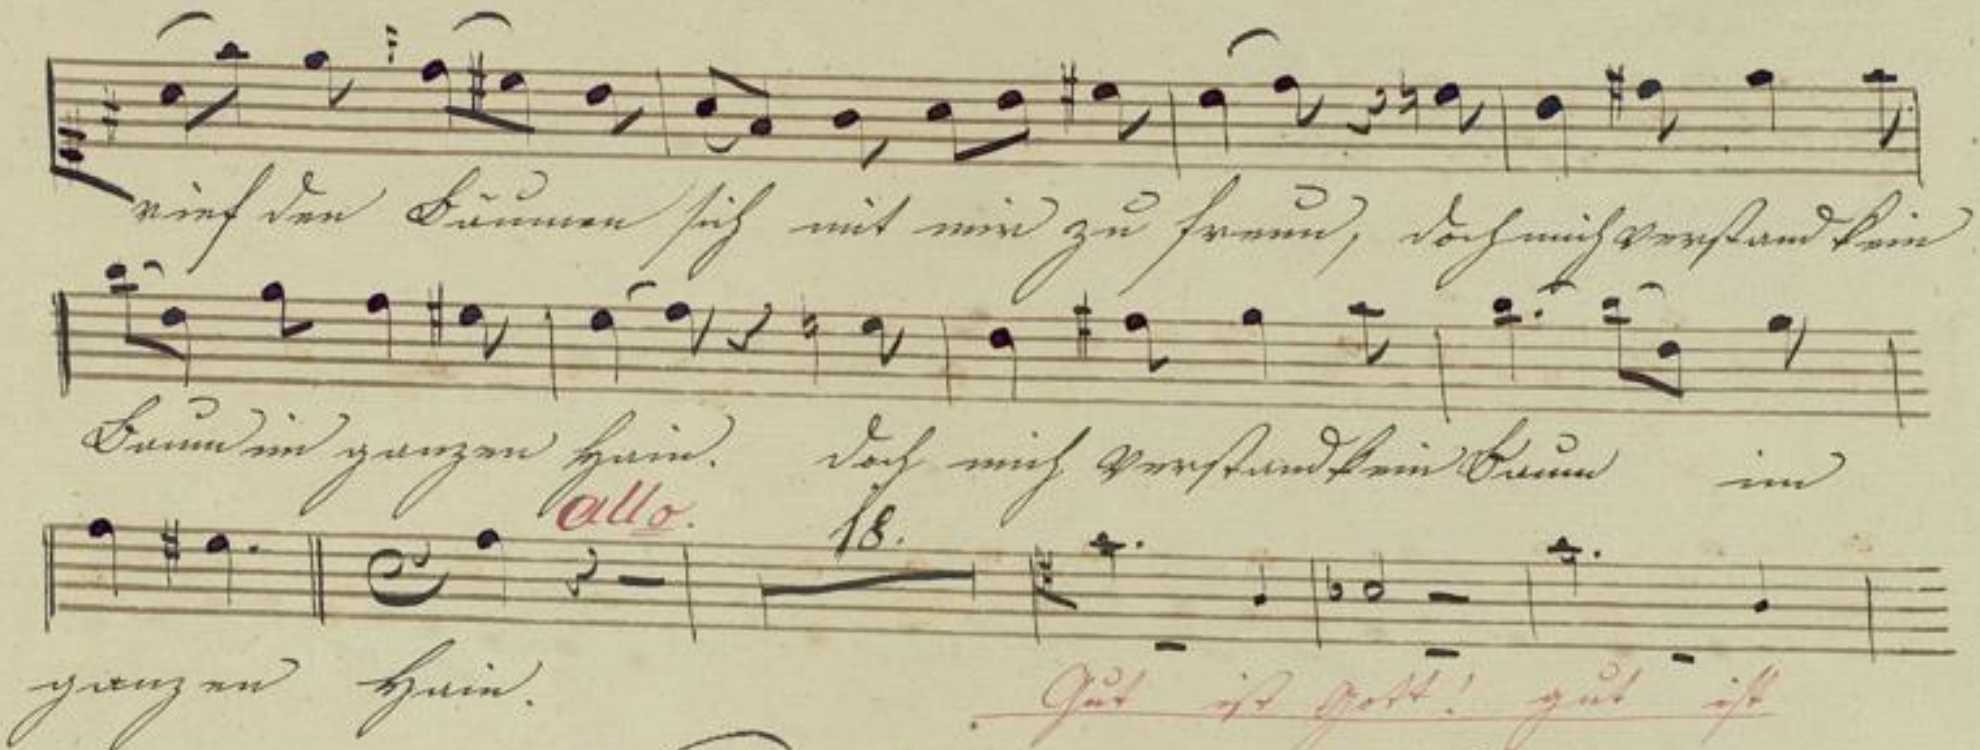 rief den Bäumen sich mit mir zu freun, doch mich verstand kein
Baum im ganzen Hain. doch mich verstand kein Baum im
allo. 18.
ganzen Hain. Gut ist Gott! gut ist